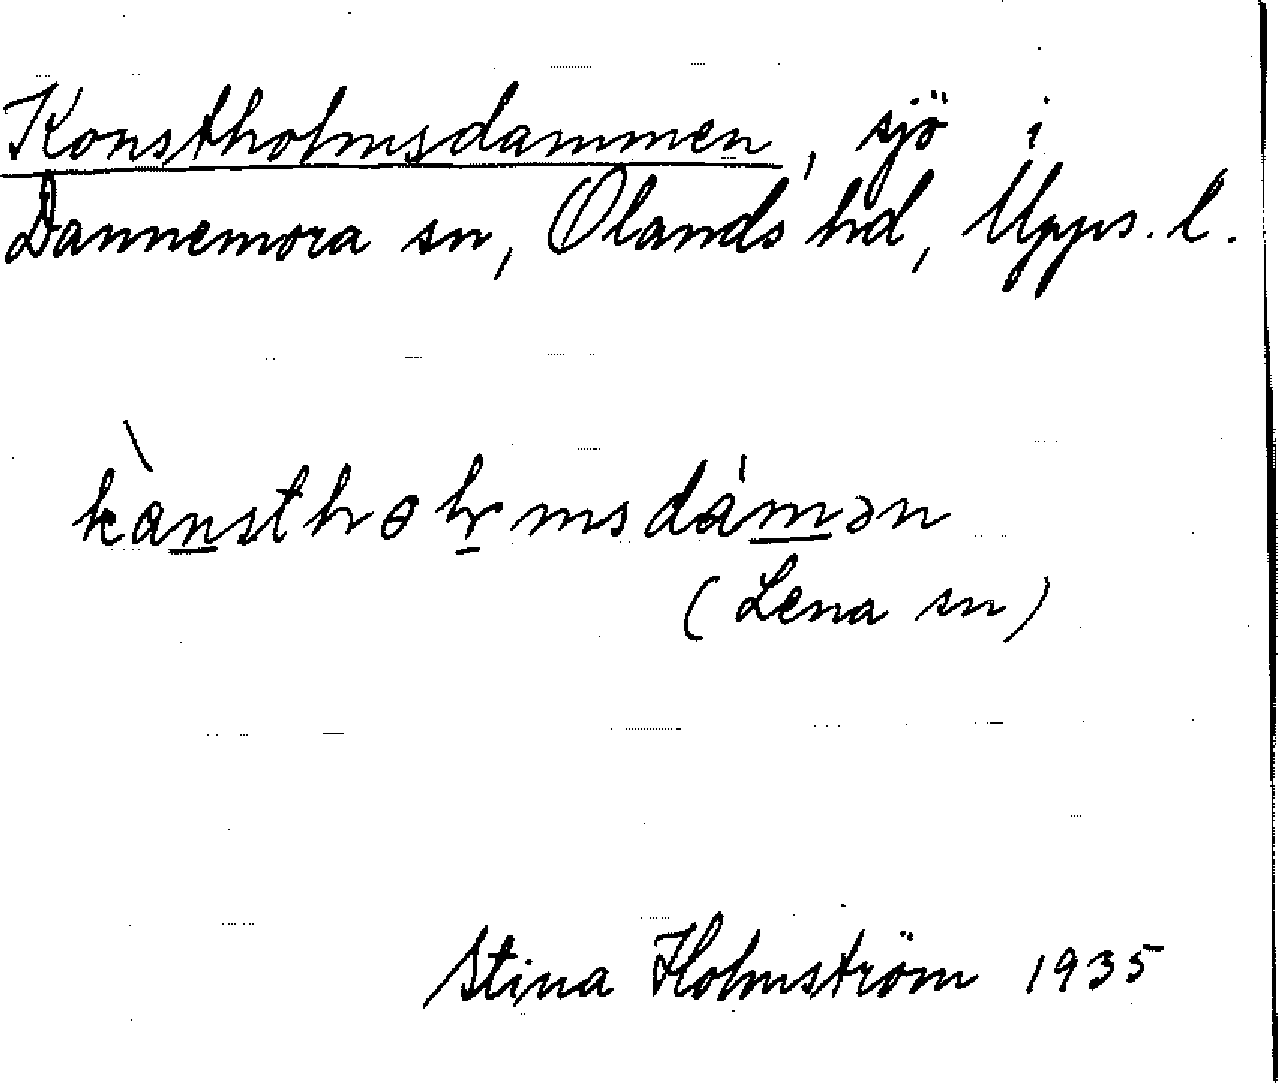 Konstholmsdammen, sjö i
Dannemora sn, Olands hd, Upps. l.
(Lena sn)
Stina Holmström 1935